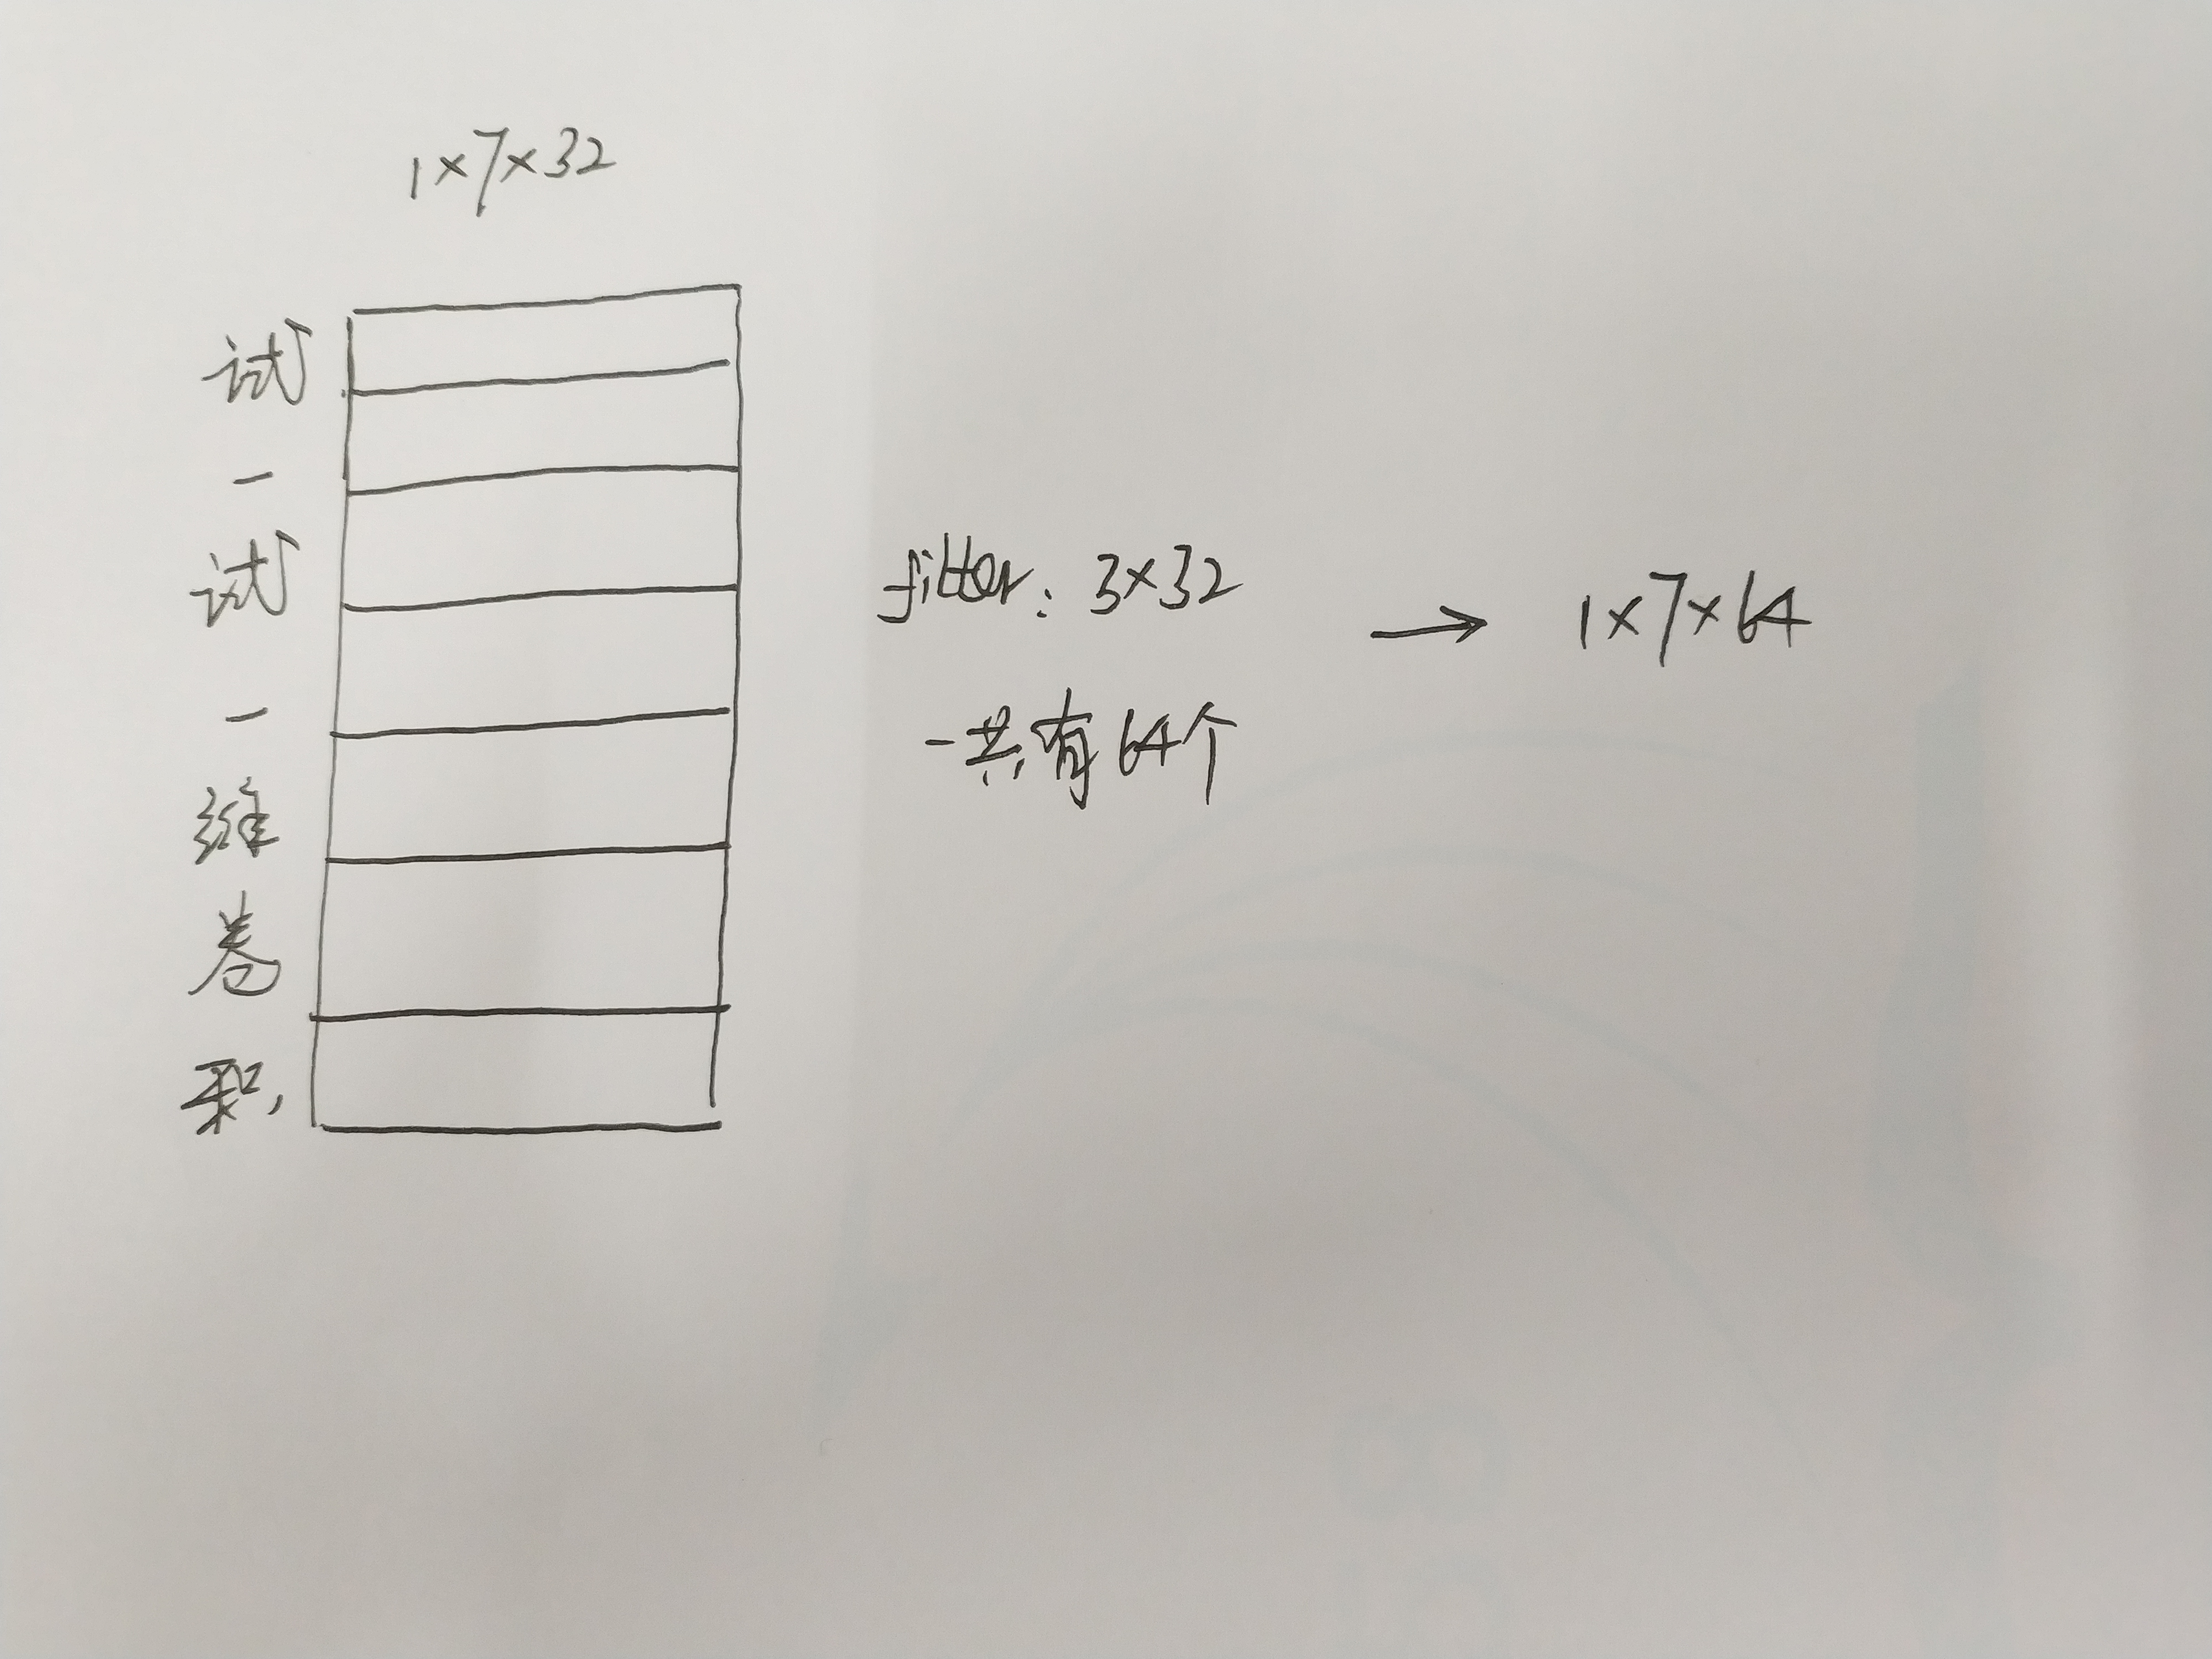 1×7×32
试
一
试
一
维
卷
积
filter: 3×32
一共有64个
→ 1×7×64